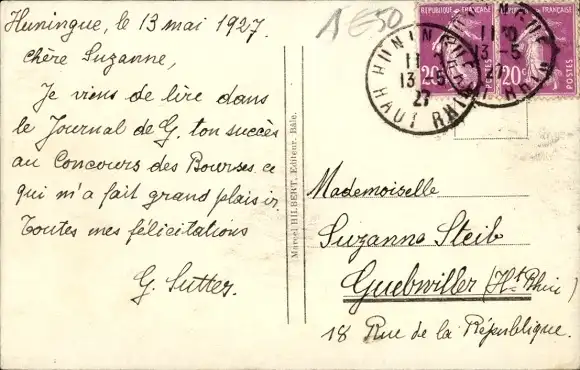 Huningue, le 13 mai 1927.
chère Suzanne,
Je viens de lire dans
le Journal de G. ton succès
au Concours des Bourses, ce
qui m'a fait grand plaisir.
Toutes mes félicitations
G. Sutter.
Marcel HILBERT, Editeur. Bâle.
1 E50
REPUBLIQUE FRANÇAISE
20c
20c
POSTES
HUNINGUE
13-5
27
HAUT RHIN
13-5
27
Mademoiselle
Suzanne Steib
Guebwiller (Ht Rhin)
18 Rue de la République.